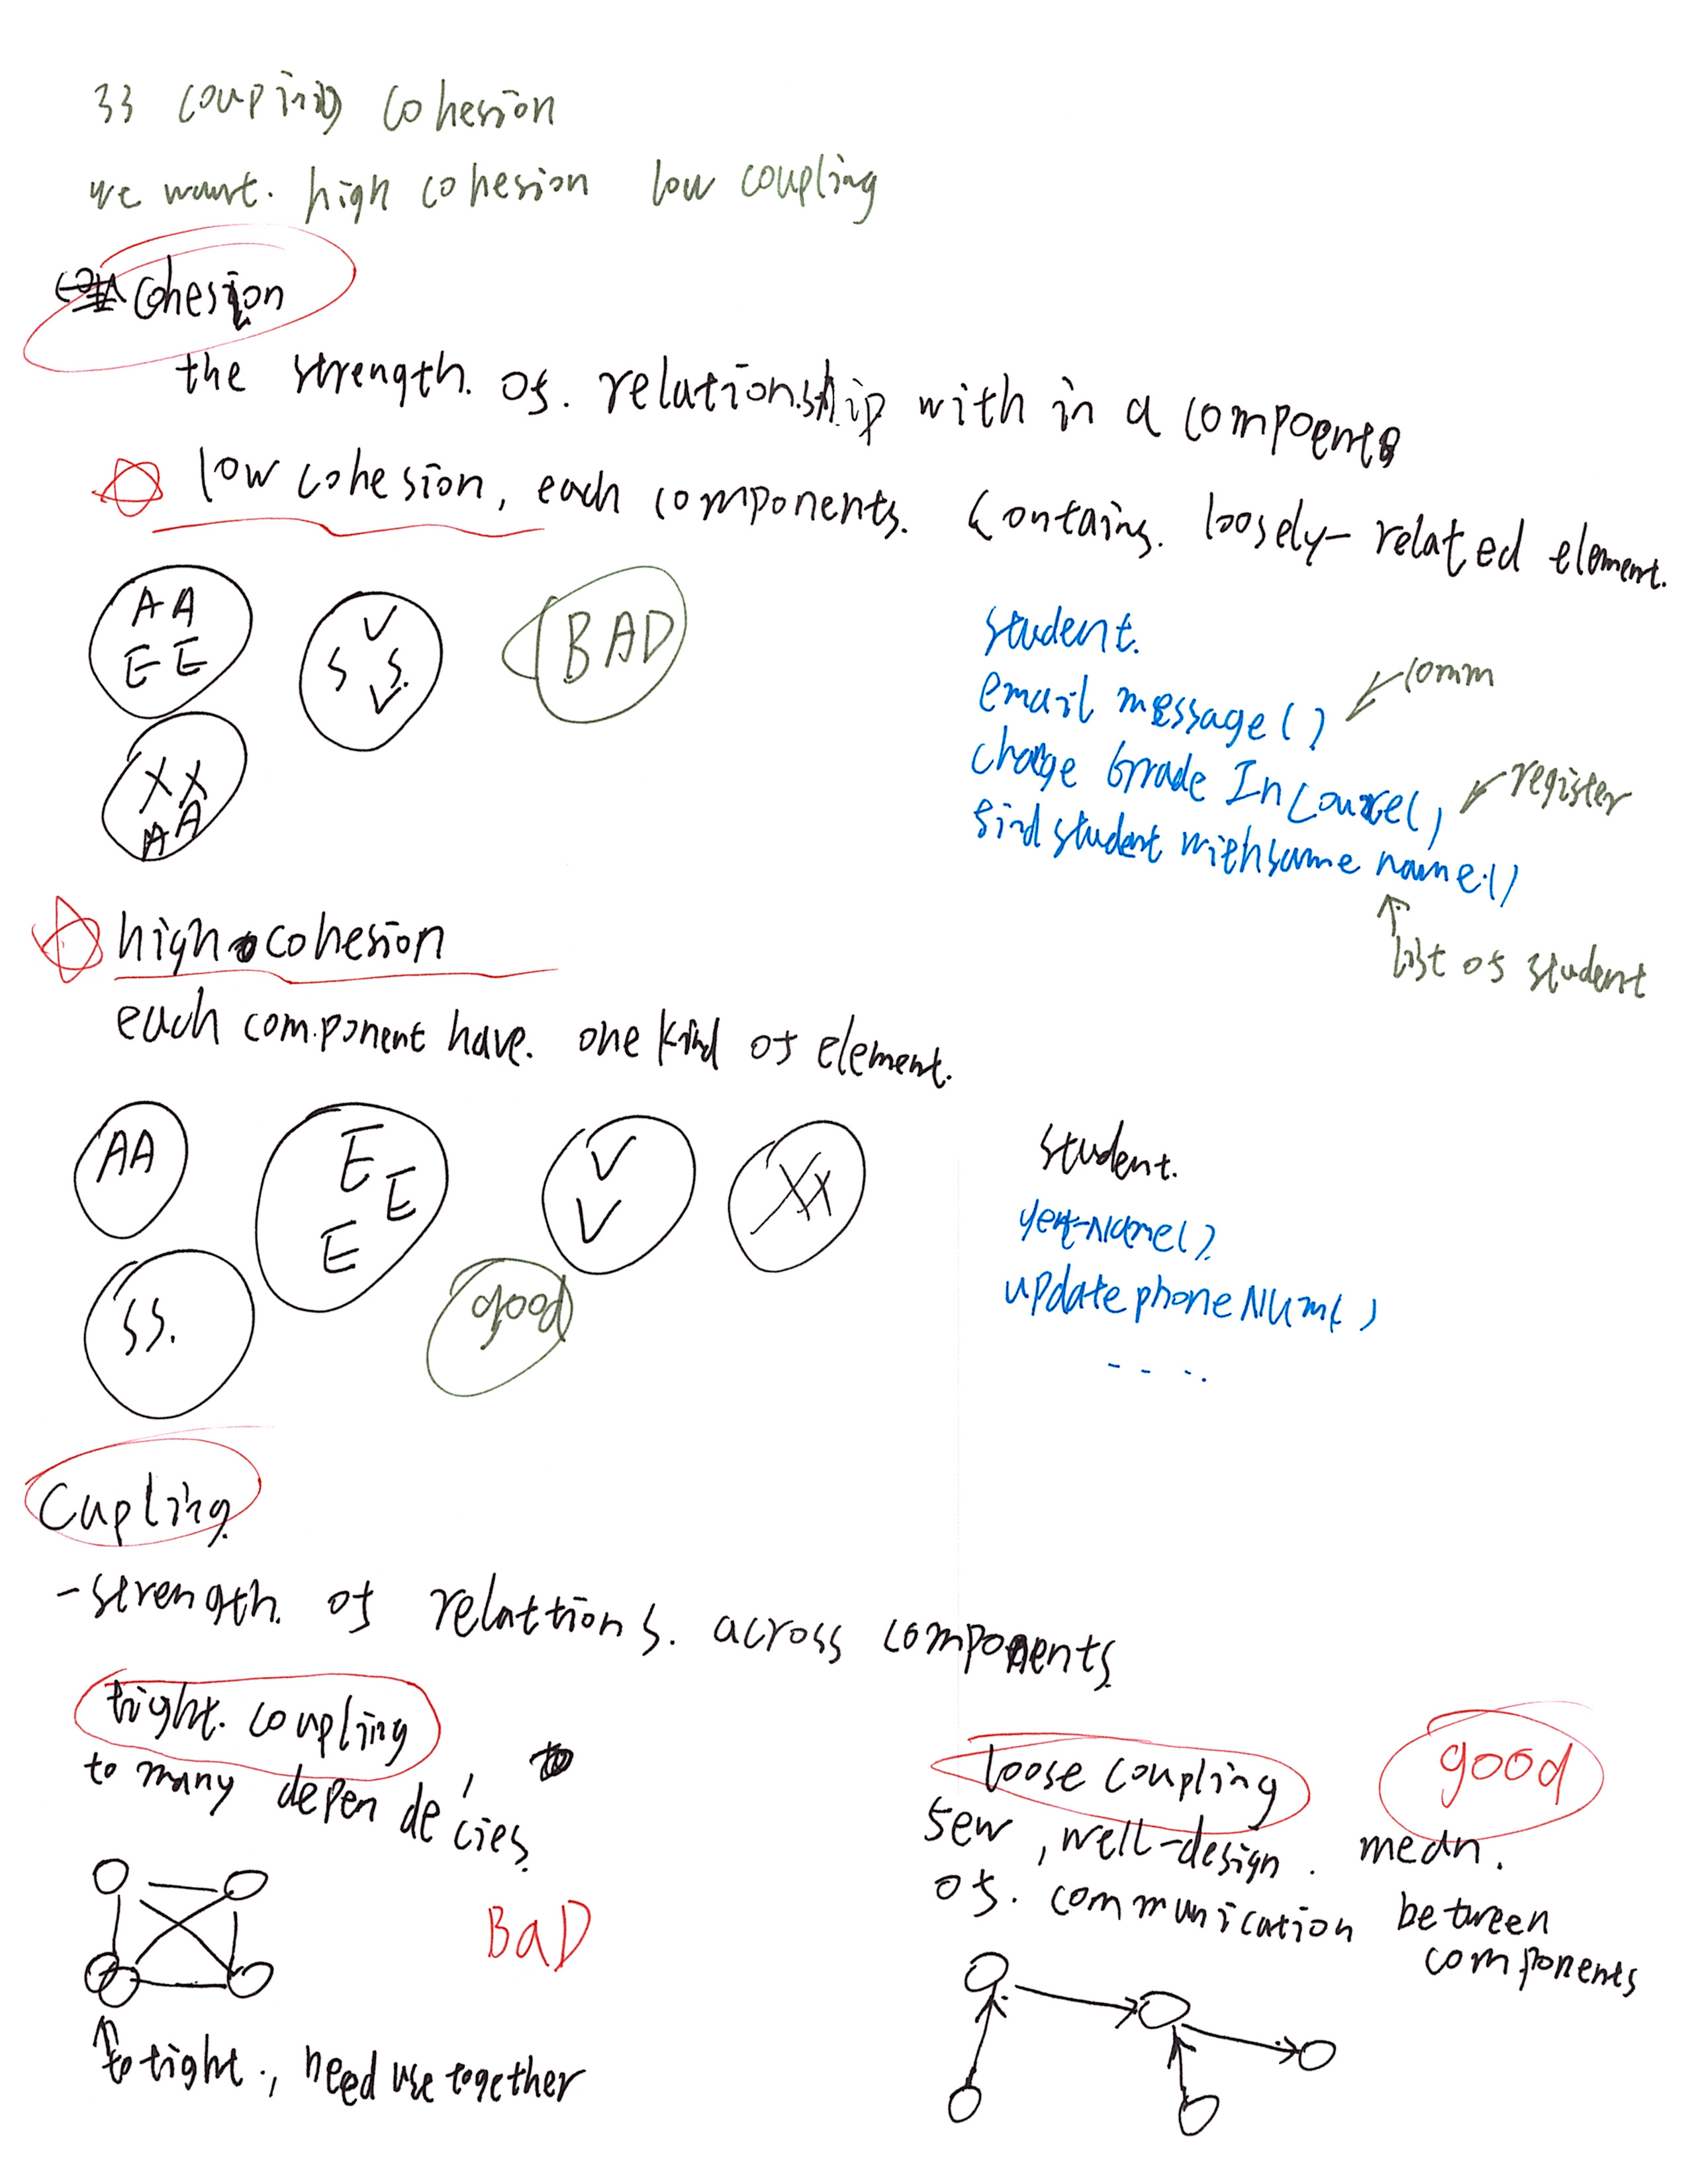 33 coupling cohesion
we want. high cohesion low coupling
cohesion
the strength. of. relationship with in a compoents
low cohesion, each components. Contains. loosely-related element.
A A
E E
V
S S.
V
BAD
X X
A A
student.
email message()
change Grade In Course()
find student with same name.()
comm
register
list of student
high cohesion
each component have. one kind of element.
AA
E
E
E
V
V
XX
SS.
good
student.
get-Name()
update phone Num()
- - - .
Cupling
-strength. of relattions. across components
tight. coupling
to many depen de cies.
BaD
to tight., need use together
loose coupling
good
few, well-design. mean.
of. communication between
components